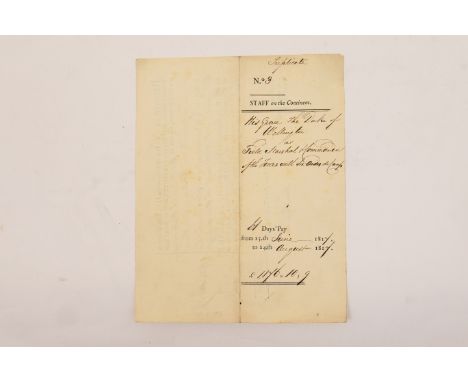 Triplicate
No. 3
STAFF on the Continent.
His Grace The Duke of
Wellington
as
Field Marshal & Commander
of the Forces with Six Aides de Camp
61 Days Pay
from 25.th June 1817
to 24th August 1817.
£ 1176.. 10.. 9